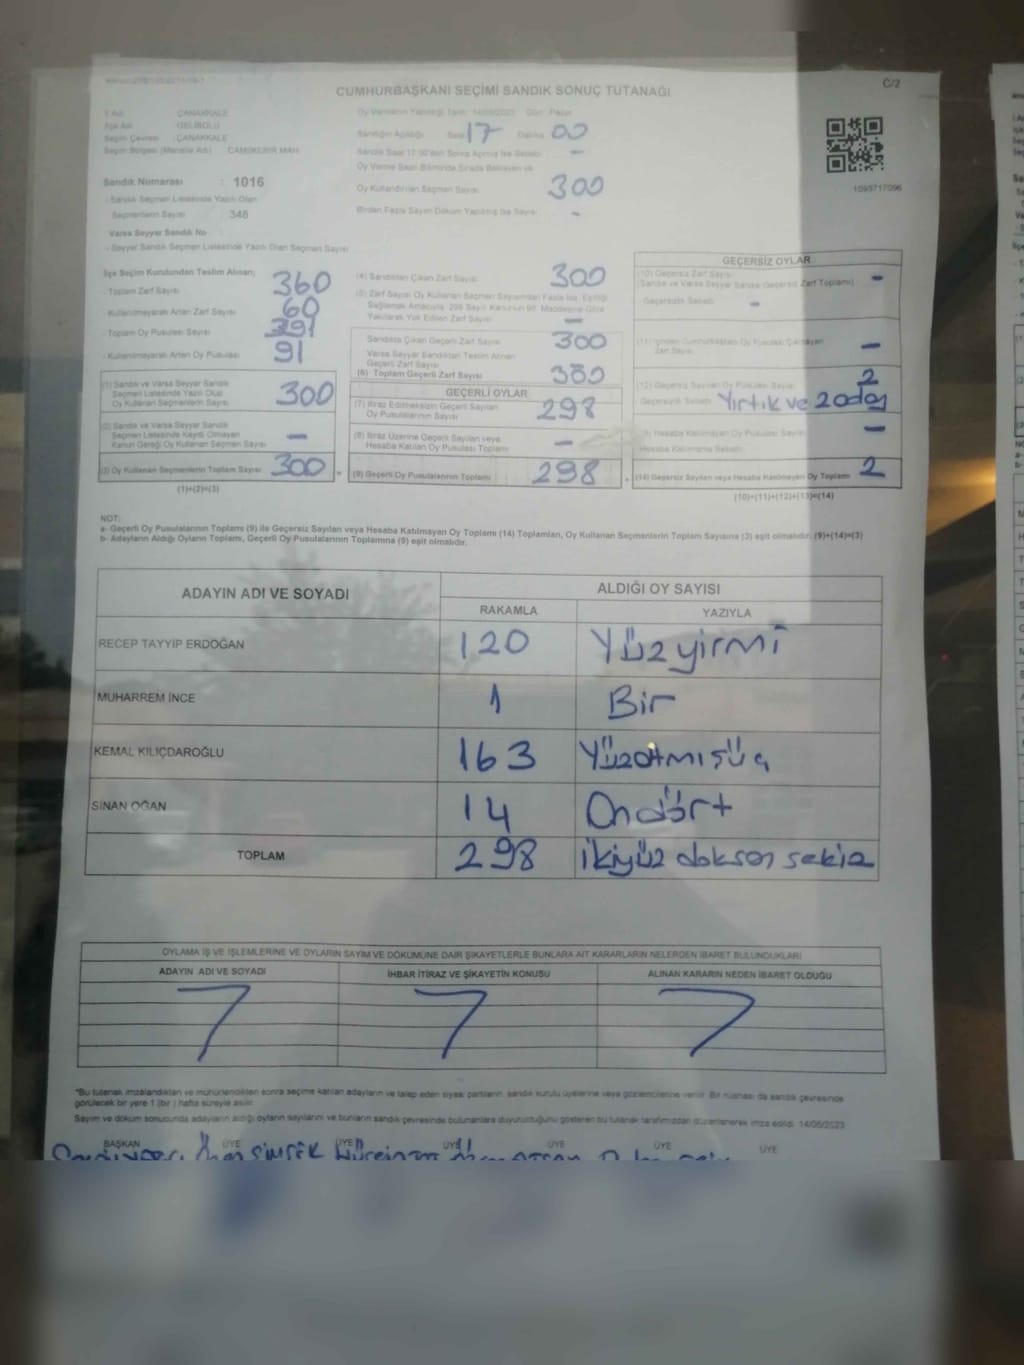 C/2
CUMHURBAŞKANI SEÇİMİ SANDIK SONUÇ TUTANAĞI
İl Adı : ÇANAKKALE
İlçe Adı : GELİBOLU
Seçim Çevresi : ÇANAKKALE
Seçim Bölgesi (Mahalle Adı) : CAMİİKEBİR MAH.
Sandık Numarası : 1016
- Sandık Seçmen Listesinde Yazılı Olan
Seçmenlerin Sayısı : 348
Varsa Seyyar Sandık No
- Seyyar Sandık Seçmen Listesinde Yazılı Olan Seçmen Sayısı
Oy Vermenin Yapıldığı Tarih: 14/05/2023 Gün: Pazar
Sandığın Açıldığı Saat 17 Dakika 00
Sandık Saat 17:00'den Sonra Açılmış İse Sebebi: -
Oy Verme Saati Bitiminde Sırada Bekleyen ve
Oy Kullandırılan Seçmen Sayısı 300
Birden Fazla Sayım Döküm Yapılmış İse Sayısı -
1093717096
İlçe Seçim Kurulundan Teslim Alınan;
- Toplam Zarf Sayısı 360
- Kullanılmayarak Artan Zarf Sayısı 60
- Toplam Oy Pusulası Sayısı 391
- Kullanılmayarak Artan Oy Pusulası 91
(1) Sandık ve Varsa Seyyar Sandık
Seçmen Listesinde Yazılı Olup
Oy Kullanan Seçmenlerin Sayısı 300
(2) Sandık ve Varsa Seyyar Sandık
Seçmen Listesinde Kayıtlı Olmayan
Kanun Gereği Oy Kullanan Seçmen Sayısı -
(3) Oy Kullanan Seçmenlerin Toplam Sayısı 300
(1)+(2)=(3)
(4) Sandıktan Çıkan Zarf Sayısı 300
(5) Zarf Sayısı Oy Kullanan Seçmen Sayısından Fazla İse, Eşitliği
Sağlamak Amacıyla, 298 Sayılı Kanunun 98. Maddesine Göre
Yakılarak Yok Edilen Zarf Sayısı -
Sandıkta Çıkan Geçerli Zarf Sayısı 300
Varsa Seyyar Sandıktan Teslim Alınan
Geçerli Zarf Sayısı
(6) Toplam Geçerli Zarf Sayısı 300
GEÇERLİ OYLAR
(7) İtiraz Edilmeksizin Geçerli Sayılan
Oy Pusulalarının Sayısı 298
(8) İtiraz Üzerine Geçerli Sayılan veya
Hesaba Katılan Oy Pusulası Toplamı -
= (9) Geçerli Oy Pusulalarının Toplamı 298
GEÇERSİZ OYLAR
(10) Geçersiz Zarf Sayısı
(Sandık ve Varsa Seyyar Sandık Geçersiz Zarf Toplamı) -
- Geçersizlik Sebebi: -
(11) İçinden Cumhurbaşkanı Oy Pusulası Çıkmayan
Zarf Sayısı -
(12) Geçersiz Sayılan Oy Pusulası Sayısı 2
- Geçersizlik Sebebi: Yırtık ve 2 aday
Hesaba Katılmayan Oy Pusulası Sayısı -
Hesaba Katılmama Sebebi:
+ (14) Geçersiz Sayılan veya Hesaba Katılmayan Oy Toplamı 2
(10)+(11)+(12)+(13)=(14)
NOT:
a- Geçerli Oy Pusulalarının Toplamı (9) ile Geçersiz Sayılan veya Hesaba Katılmayan Oy Toplamı (14) Toplamları, Oy Kullanan Seçmenlerin Toplam Sayısına (3) eşit olmalıdır. (9)+(14)=(3)
b- Adayların Aldığı Oyların Toplamı, Geçerli Oy Pusulalarının Toplamına (9) eşit olmalıdır.
ADAYIN ADI VE SOYADI ALDIĞI OY SAYISI
RAKAMLA YAZIYLA
RECEP TAYYİP ERDOĞAN 120 Yüzyirmi
MUHARREM İNCE 1 Bir
KEMAL KILIÇDAROĞLU 163 Yüzatmışüç
SİNAN OĞAN 14 Ondört
TOPLAM 298 ikiyüz doksan sekiz
OYLAMA İŞ VE İŞLEMLERİNE VE OYLARIN SAYIM VE DÖKÜMÜNE DAİR ŞİKAYETLERLE BUNLARA AİT KARARLARIN NELERDEN İBARET BULUNDUKLARI
ADAYIN ADI VE SOYADI İHBAR İTİRAZ VE ŞİKAYETİN KONUSU ALINAN KARARIN NEDEN İBARET OLDUĞU
*Bu tutanak imzalandıktan ve mühürlendikten sonra seçime katılan adayların ve talep eden siyasi partilerin, sandık kurulu üyelerine veya gözlemcilerine verilir. Bir nüshası da sandık çevresinde
görülecek bir yere 1 (bir) hafta süreyle asılır.
Sayım ve döküm sonucunda adayların aldığı oyların sayılarını ve bunların sandık çevresinde bulunanlara duyurulduğunu gösteren bu tutanak tarafımızdan düzenlenerek imza edildi. 14/05/2023
BAŞKAN ÜYE ÜYE ÜYE ÜYE ÜYE ÜYE